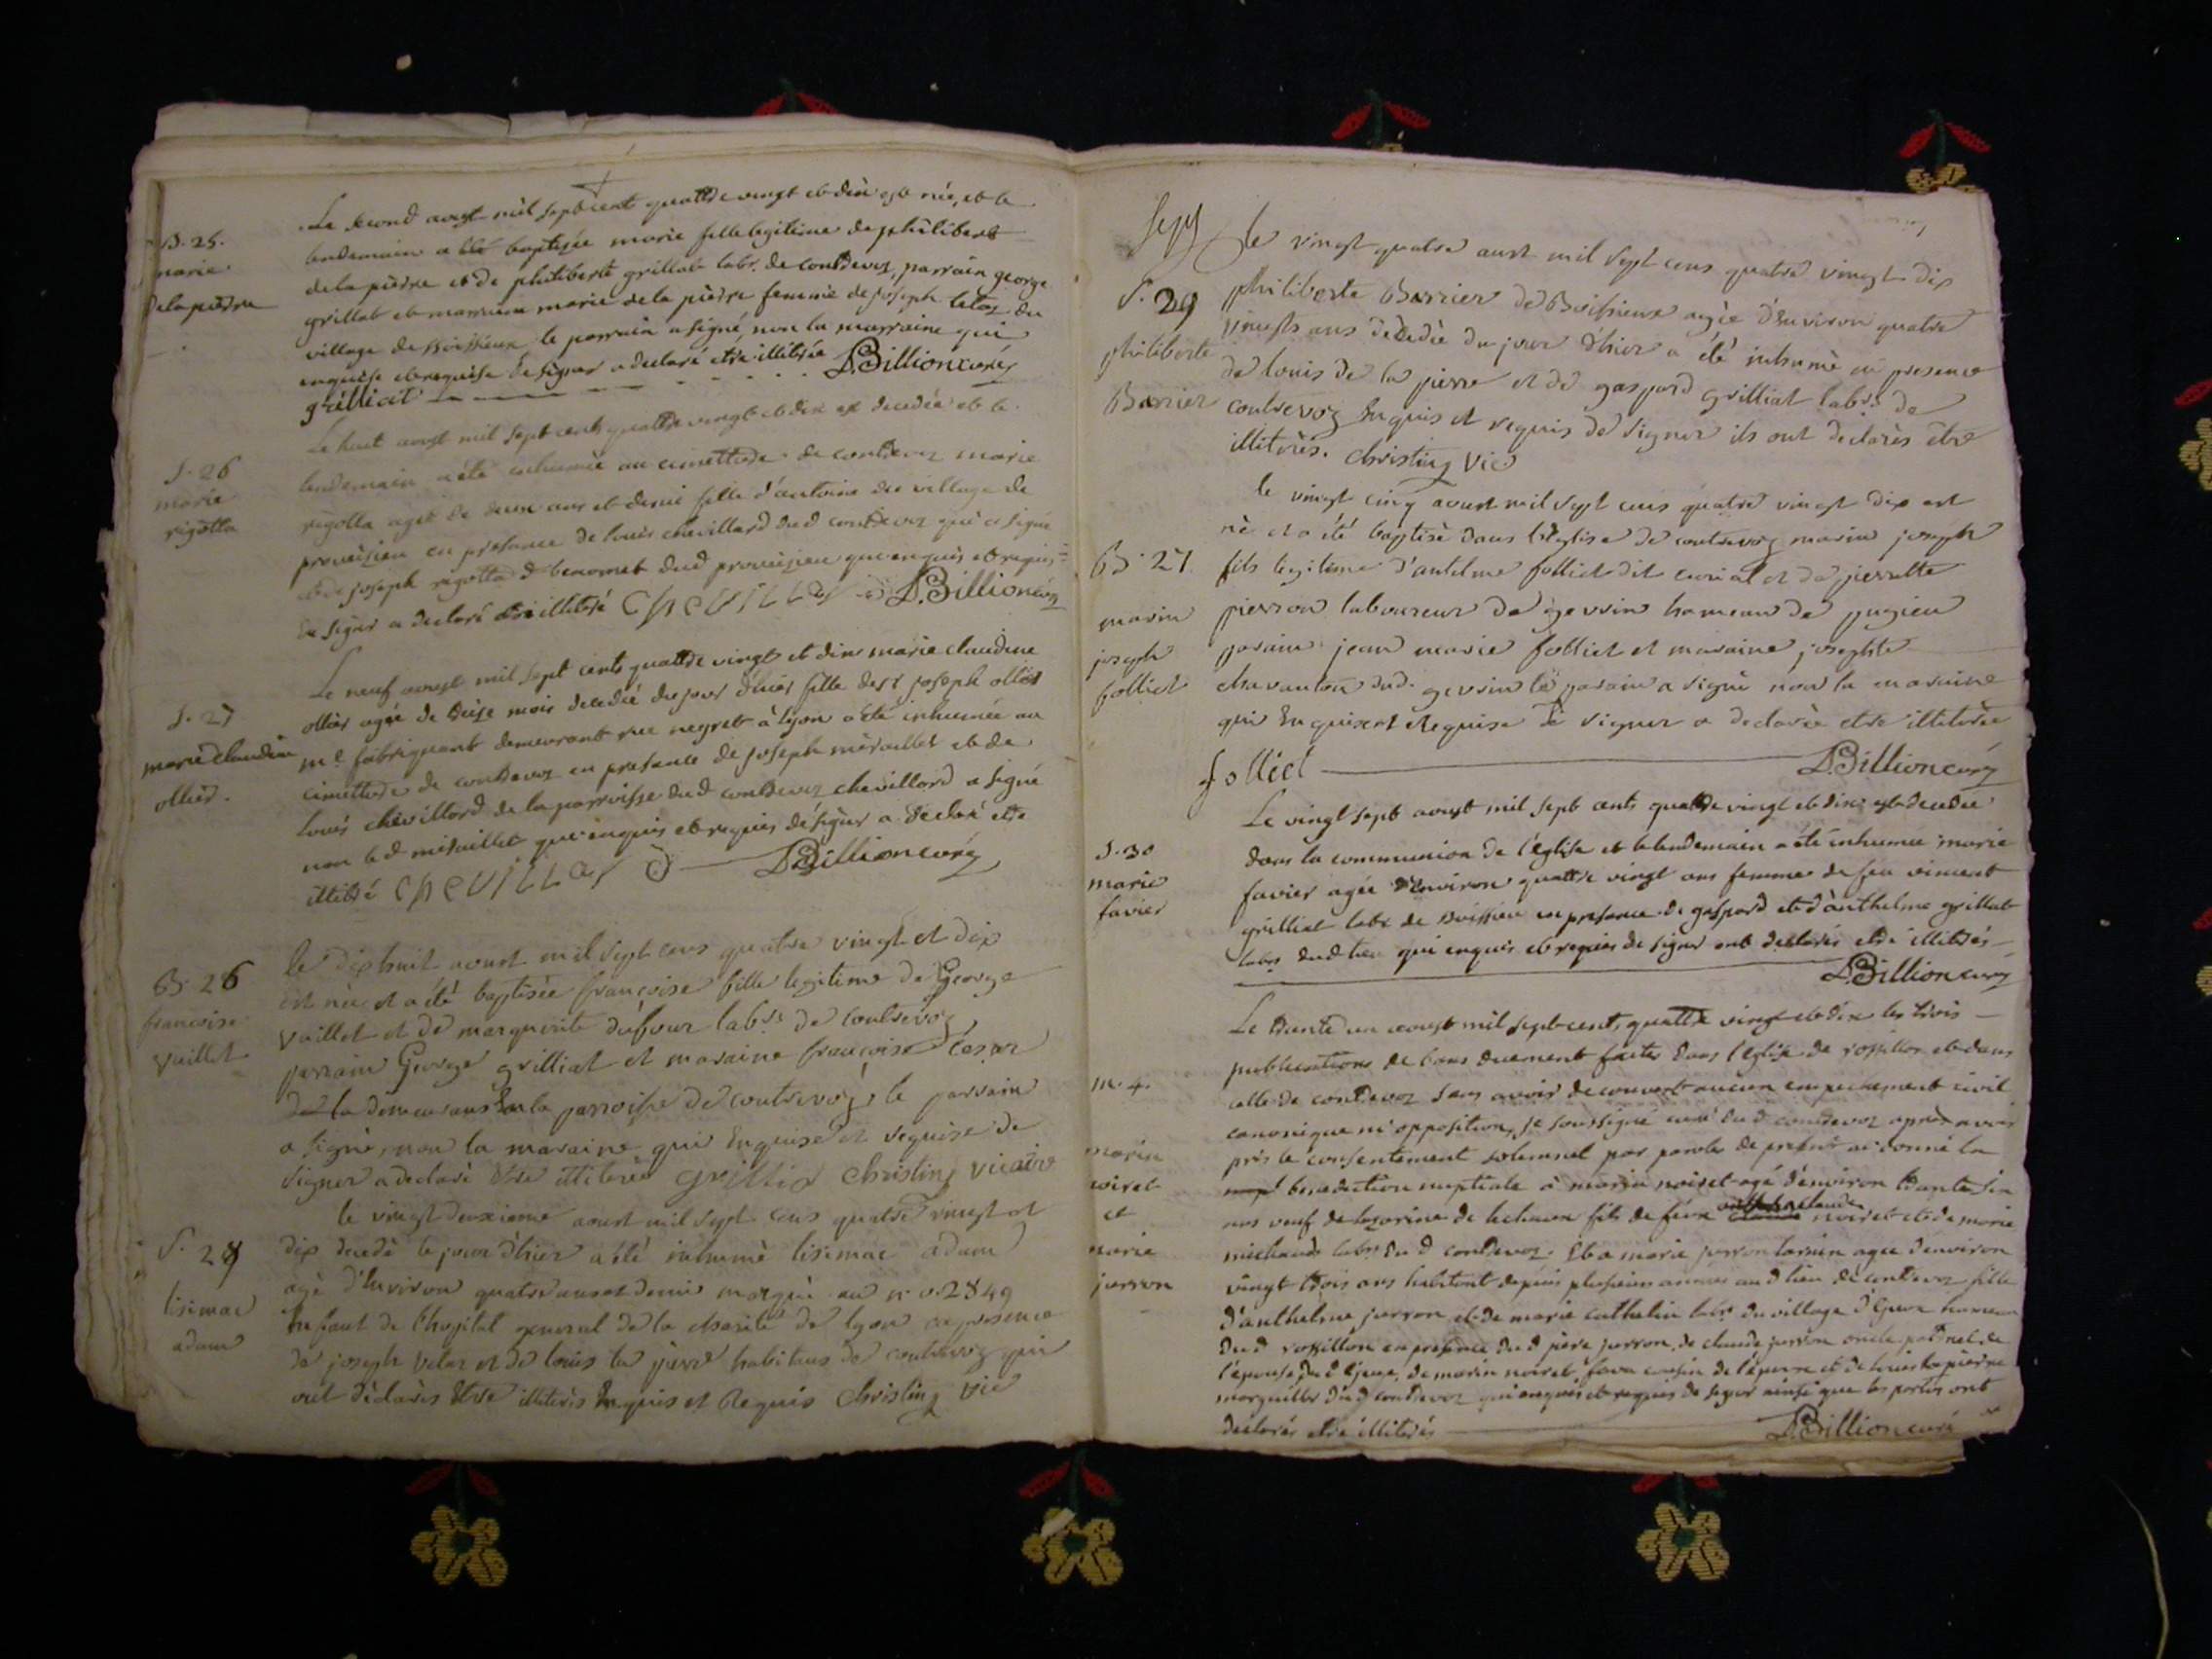 B. 25.
marie
Delapierre
Le second aoust mil sept cent quattre vingt et dix est née, et le
lendemain a été baptisée marie fille legitime de philibert
de la pierre et de philiberte grillat labr. de contrevoz, parrain george
grillat et marraine marie de la pierre femme de joseph du
village de Boissieux le parrain a signé, non la marraine qui
enquise et requise de signer a declaré etre illitérée D. Billion curé
grilliat
S. 26
marie
rigotta
Le huit aoust mil sept cents quattre vingt et dix est decedée et le
lendemain a été inhumée au cimettiere de contrevoz marie
rigolla ageé de deux ans et demi fille d'antoine du village de
proveizieu en presance de louis chevillard dud contrevoz qui a signé
et de joseph rigotta dud proveizieu qui enquis et requis
de signer a declaré etre illiteré chevillar D. Billion curé
S. 27
marie claudine
ollier.
Le neuf aoust mil sept cents quattre vingt et dix marie claudine
ollier agée de treize mois decedée du jour d'hier fille de sr joseph ollier
me. fabriquant demeurant rue negret à lyon a été inhumée au
cimettiere de contrevoz en presance de joseph miraillet et de
louis chevillard de la parroisse dud contrevoz chevillard a signé
non led miraillet qui enquis et requis de signer a declaré etre
illitéré chevillar D. Billion curé
B. 26
francoise
vuillet
le dix huit aoust mil sept cens quatre vingt et dix
est née et a été baptisée françoise fille legitime de George
vuillet et de marguerite dufour labrs de contrevoz,
parrain George grilliat et maraine françoise cesar
de la demeurans sur la parroisse de contrevoz, le parrain
a signé, non la maraine, qui Enquise et requise de
signer a declaré Etre illiterée grillia Christin vicaire
S. 28
lisimac
adam
le vingt deuxieme aoust mil sept cens quatre vingt et
dix decedé le jour d'hier a été inhumé lisimac adam
agé d'Environ quatre ans et demi marqué au n° v. 2849
Enfant de l'hopital general de la charité de lyon en presence
de joseph velat et de louis la pierre habitans de contrevoz qui
ont déclarés Etre illiterés Enquis et Requis Christin vic
Sept
S. 29
philiberte
Barrier
le vingt quatre aust mil sept cens quatre vingt dix
philiberte Barrier de Boissieux agée d'Environ quatre
vingts ans décedée du jour d'hier a été inhumé en presence
de louis de la pierre et de gaspard grilliat labrs de
contrevoz Enquis et requis de signer ils ont declarés être
illiterés. Christin vic
B. 27.
marin
joseph
folliet
le vingt cinq aoust mil sept cens quatre vingt dix est
né et a été baptisé dans l'église de contrevoz marin joseph
fils legitime d'antelme folliet dit curial et de pierrette
pierron laboureur de gevrin hameau de pugieu
parain jean marie folliet et maraine josephte
chavanton dud. gevrin le parain a signé non la maraine
qui Enquise et Requise de signer a declarée etre illiterée
folliet D. Billion curé
S. 30
marie
favier
Le vingt sept aoust mil sept cents quattre vingt et dix est decedée
dans la communion de l'église et le lendemain a été inhumée marie
favier agée d'Environ quattre vingt ans femme de feu vincent
grilliat labr de Boissieu en presance de gaspard et d'anthelme grillat
labrs dud lieu qui enquis et requis de signer ont declarés etre illiterés
D. Billion curé
m. 4.
marin
noiret
et
marie
jurron
Le trante un aoust mil sept cent, quattre vingt et dix les trois
publications de bans duement faites dans l'eglise de rossillon et dans
celle de contrevoz sans avoir decouvert aucun empechement civil
canonique ni opposition, je soussigné curé dud contrevoz après avoir
pris le consentement solemnel par parole de present ai donné la
benediction nuptiale à marin noiret agé d'environ trante six
ans veuf de lazarine de lichaux fils de feux claude noiret et de marie
michaud labr. dud contrevoz. Et a marie jurron agee denviron
vingt trois ans habitant depuis plusieurs années aud lieu de contrevoz fille
d'anthelme jurron et de marie cathelin labrs du village d'Egieux hameau
dud rossillon en presence dud père jurron, de claude jurron oncle paternel de
l'épouse dud Ejeux, de marin noiret cousin de l'époux et de louis lapierre
marguiller dud contrevoz qui enquis et requis de signer ainsi que les parties ont
declarés etre illiterés D. Billion curé